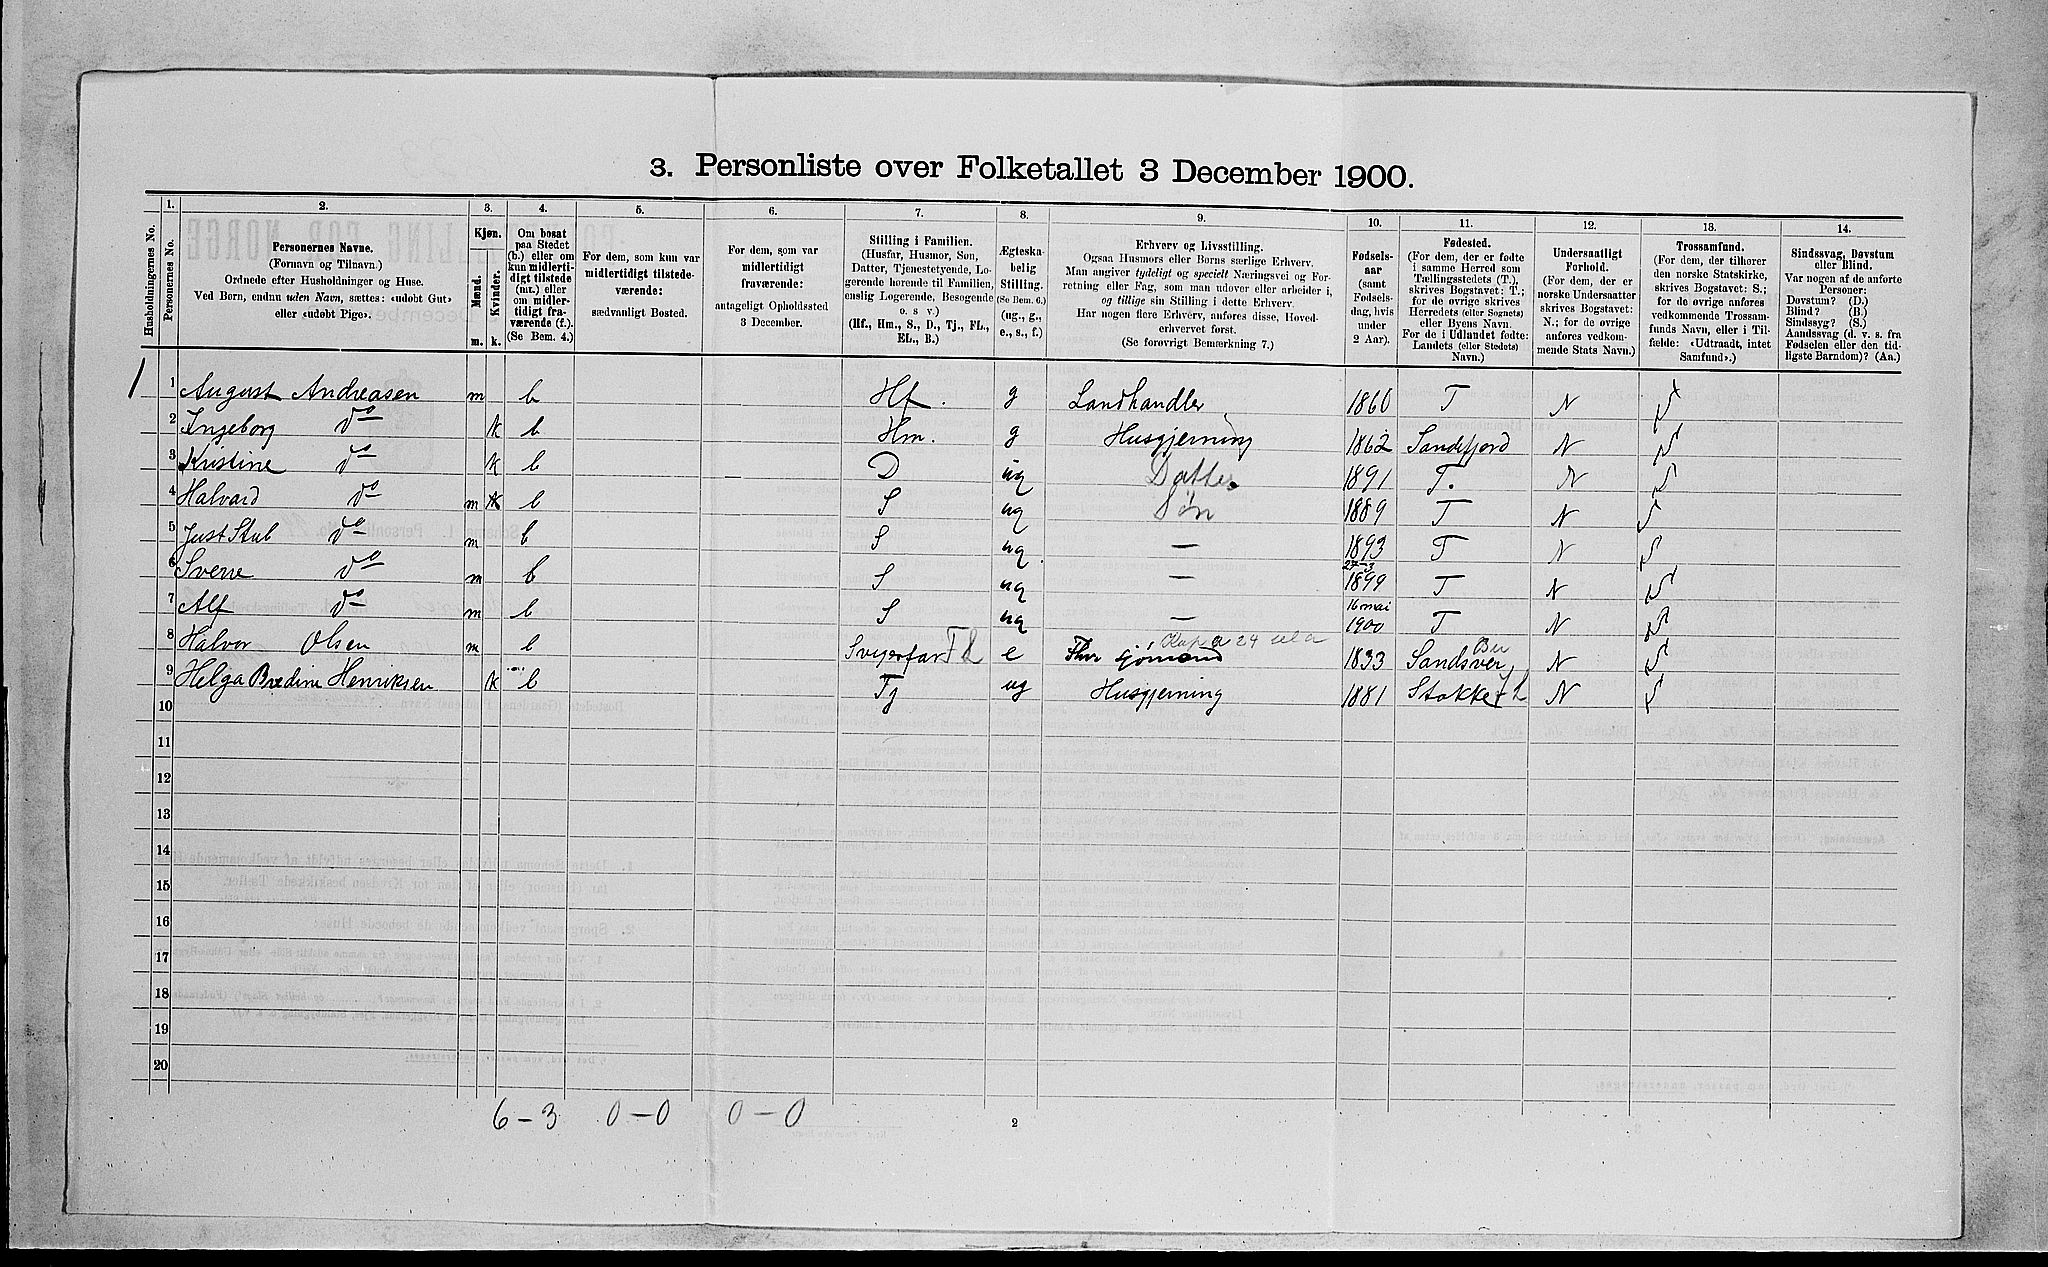 3. Personliste over Folketallet 3 December 1900.
1. 2. 3. 4. 5. 6. 7. 8. 9. 10. 11. 12. 13. 14.
Husholdningernes No.
Personernes No.
Personernes Navne.
(Fornavn og Tilnavn.)
Ordnede efter Husholdninger og Huse.
Ved Børn, endnu uden Navn, sættes: «udøbt Gut»
eller «udøbt Pige».
Kjøn.
Mænd.
Kvinder.
m. k.
Om bosat
paa Stedet
(b.) eller om
kun midlerti-
digt tilstede
(mt.) eller
om midler-
tidigt fra-
værende (f.).
(Se Bem. 4.)
For dem, som kun var
midlertidigt tilstede-
værende:
sædvanligt Bosted.
For dem, som var
midlertidigt
fraværende:
antageligt Opholdssted
3 December.
Stilling i Familien.
(Husfar, Husmor, Søn,
Datter, Tjenestetyende, Lo-
gerende hørende til Familien,
enslig Logerende, Besøgende
o. s v.)
(Hf., Hm., S., D., Tj., FL.,
EL., B.)
Ægteska-
belig
Stilling.
(Se Bem. 6.)
(ug., g.,
e., s., f.)
Erhverv og Livsstilling.
Ogsaa Husmors eller Børns særlige Erhverv.
Man angiver tydeligt og specielt Næringsvei og For-
retning eller Fag, som man udøver eller arbeider i,
og tillige sin Stilling i dette Erhverv.
Har nogen flere Erhverv, anføres disse, Hoved-
erhvervet først.
(Se forøvrigt Bemærkning 7.)
Fødsels-
aar
(samt
Fødsels-
dag, hvis
under
2 Aar).
Fødested.
(For dem, der er fødte
i samme Herred som
Tællingsstedets (T.),
skrives Bogstavet: T.;
for de øvrige skrives
Herredets (eller Sognets)
eller Byens Navn.
For de i Udlandet fødte:
Landets (eller Stedets)
Navn.)
Undersaatligt
Forhold.
(For dem, der er
norske Undersaatter
skrives Bogstavet:
N.; for de øvrige
anføres vedkom-
mende Stats Navn.)
Trossamfund.
(For dem, der tilhører
den norske Statskirke,
skrives Bogstavet: S.;
for de øvrige anføres
vedkommende Trossam-
funds Navn, eller i Til-
fælde: «Udtraadt, intet
Samfund».)
Sindssvag, Døvstum
eller Blind.
Var nogen af de anførte
Personer:
Døvstum? (D.)
Blind? (B.)
Sindssyg? (S.)
Aandssvag (d. v. s. fra
Fødselen eller den tid-
ligste Barndom)? (Aa.)
1 1 August Andreasen m b Hf. g Landhandler 1860 T N S
2 Ingeborg do k b Hm. g Husgjerning 1862 Sandefjord N S
3 Kristine do k b D ug Datter 1891 T. N S
4 Halvard do m k b S ug Søn 1889 T N S
5 Just Skub do m b S ug — 1893 T N S
6 Sverre do m b S ug — 27-3 1899 T N S
7 Alf do m b S ug — 16 mai 1900 T N S
8 Halvor Olsen m b Svigerfar FL e Fhv sjømand 1833 Sandsver N S
9 Helga Bredine Henriksen k b Tj ug Husgjerning 1881 Stokke N S
10
11
12
13
14
15
16
17
18
19
20
6 — 3 0 — 0 0 — 0
2